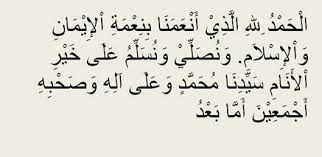 الْحَمْدُ لِلهِ الَّذِيْ أَنْعَمَنَا بِنِعْمَةِ اْلإِيْمَانِ
وَاْلإِسْلاَمِ. وَنُصَلِّيْ وَنُسَلِّمُ عَلَى خَيْرِ
اْلأَنَامِ سَيِّدِنَا مُحَمَّدٍ وَعَلَى آلِهِ وَصَحْبِهِ
أَجْمَعِيْنَ أَمَّا بَعْدُ